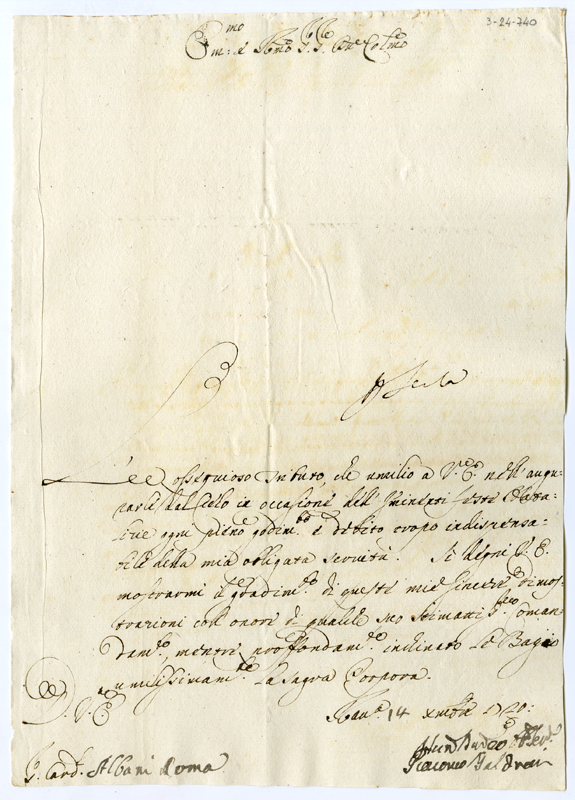 3-24-740
Em:mo e R.mo Sig.re Sig.re P.ron Col.mo
B. Feste
L'ossequioso tributo, che umilio a V.E. nell'augu-
rarle dal Cielo in occasione dell'iminenti feste Nata-
lizie ogni pieno godim.to è debito proprio indispensa-
bile della mia obligata servitù. Si degni V.E.
mostrarmi il gradim.to di queste mie sincere dimos-
trazioni coll'onore di qualche suo stimatiss.mo coman-
dam.to, mentre proffondam.te inchinato Le Bagio
umilissimam.te la Sagra Porpora.
D. V.E.
14 xmbre 1720:
S. Card. Albani Roma
Giacomo